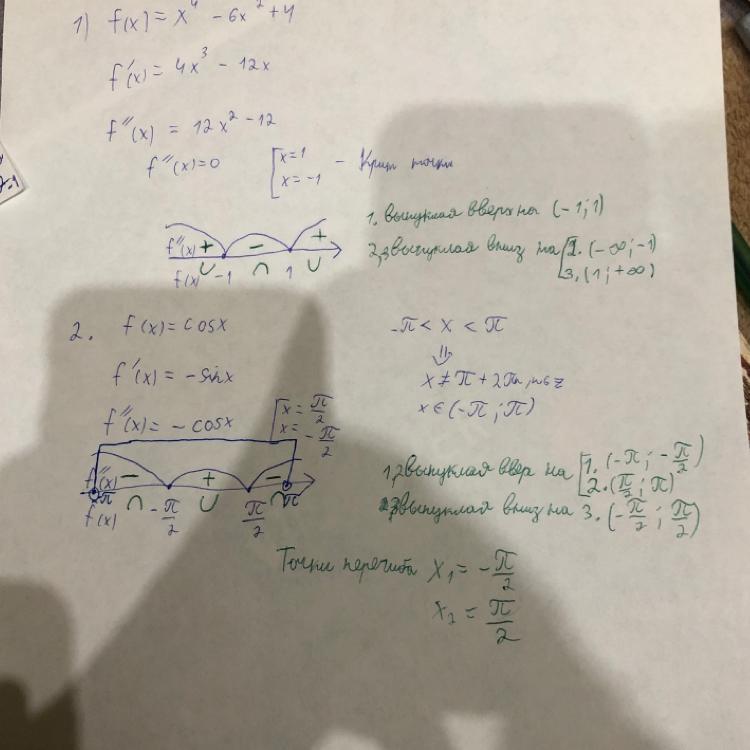 1) f(x) = x⁴ - 6x² + 4
f'(x) = 4x³ - 12x
f''(x) = 12x² - 12
f''(x) = 0 [x = 1 x = -1 - Крит точки
f''(x) + - +
f(x) ∪ -1 ∩ 1 ∪
1. выпуклая вверх на (-1; 1)
2,3 выпуклая вниз на [2. (-∞; -1)
3. (1; +∞)
2. f(x) = cosx
f'(x) = -sinx
f''(x) = -cosx [x = π/2 x = -π/2
-π < x < π
⇓
x ≠ π + 2πn, n∈z
x ∈ (-π; π)
f''(x) - + -
-π ∩ -π/2 ∪ π/2 ∩ π
f(x)
1,2 выпуклая ввер на [1. (-π; -π/2)
2. (π/2; π)
выпуклая вниз на 3. (-π/2; π/2)
Точки перегиба x₁ = -π/2
x₂ = π/2